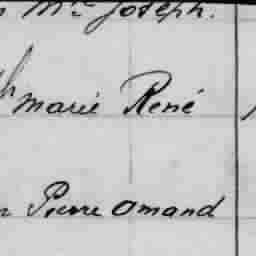 Mre Joseph.
Marié René
Pierre Omand